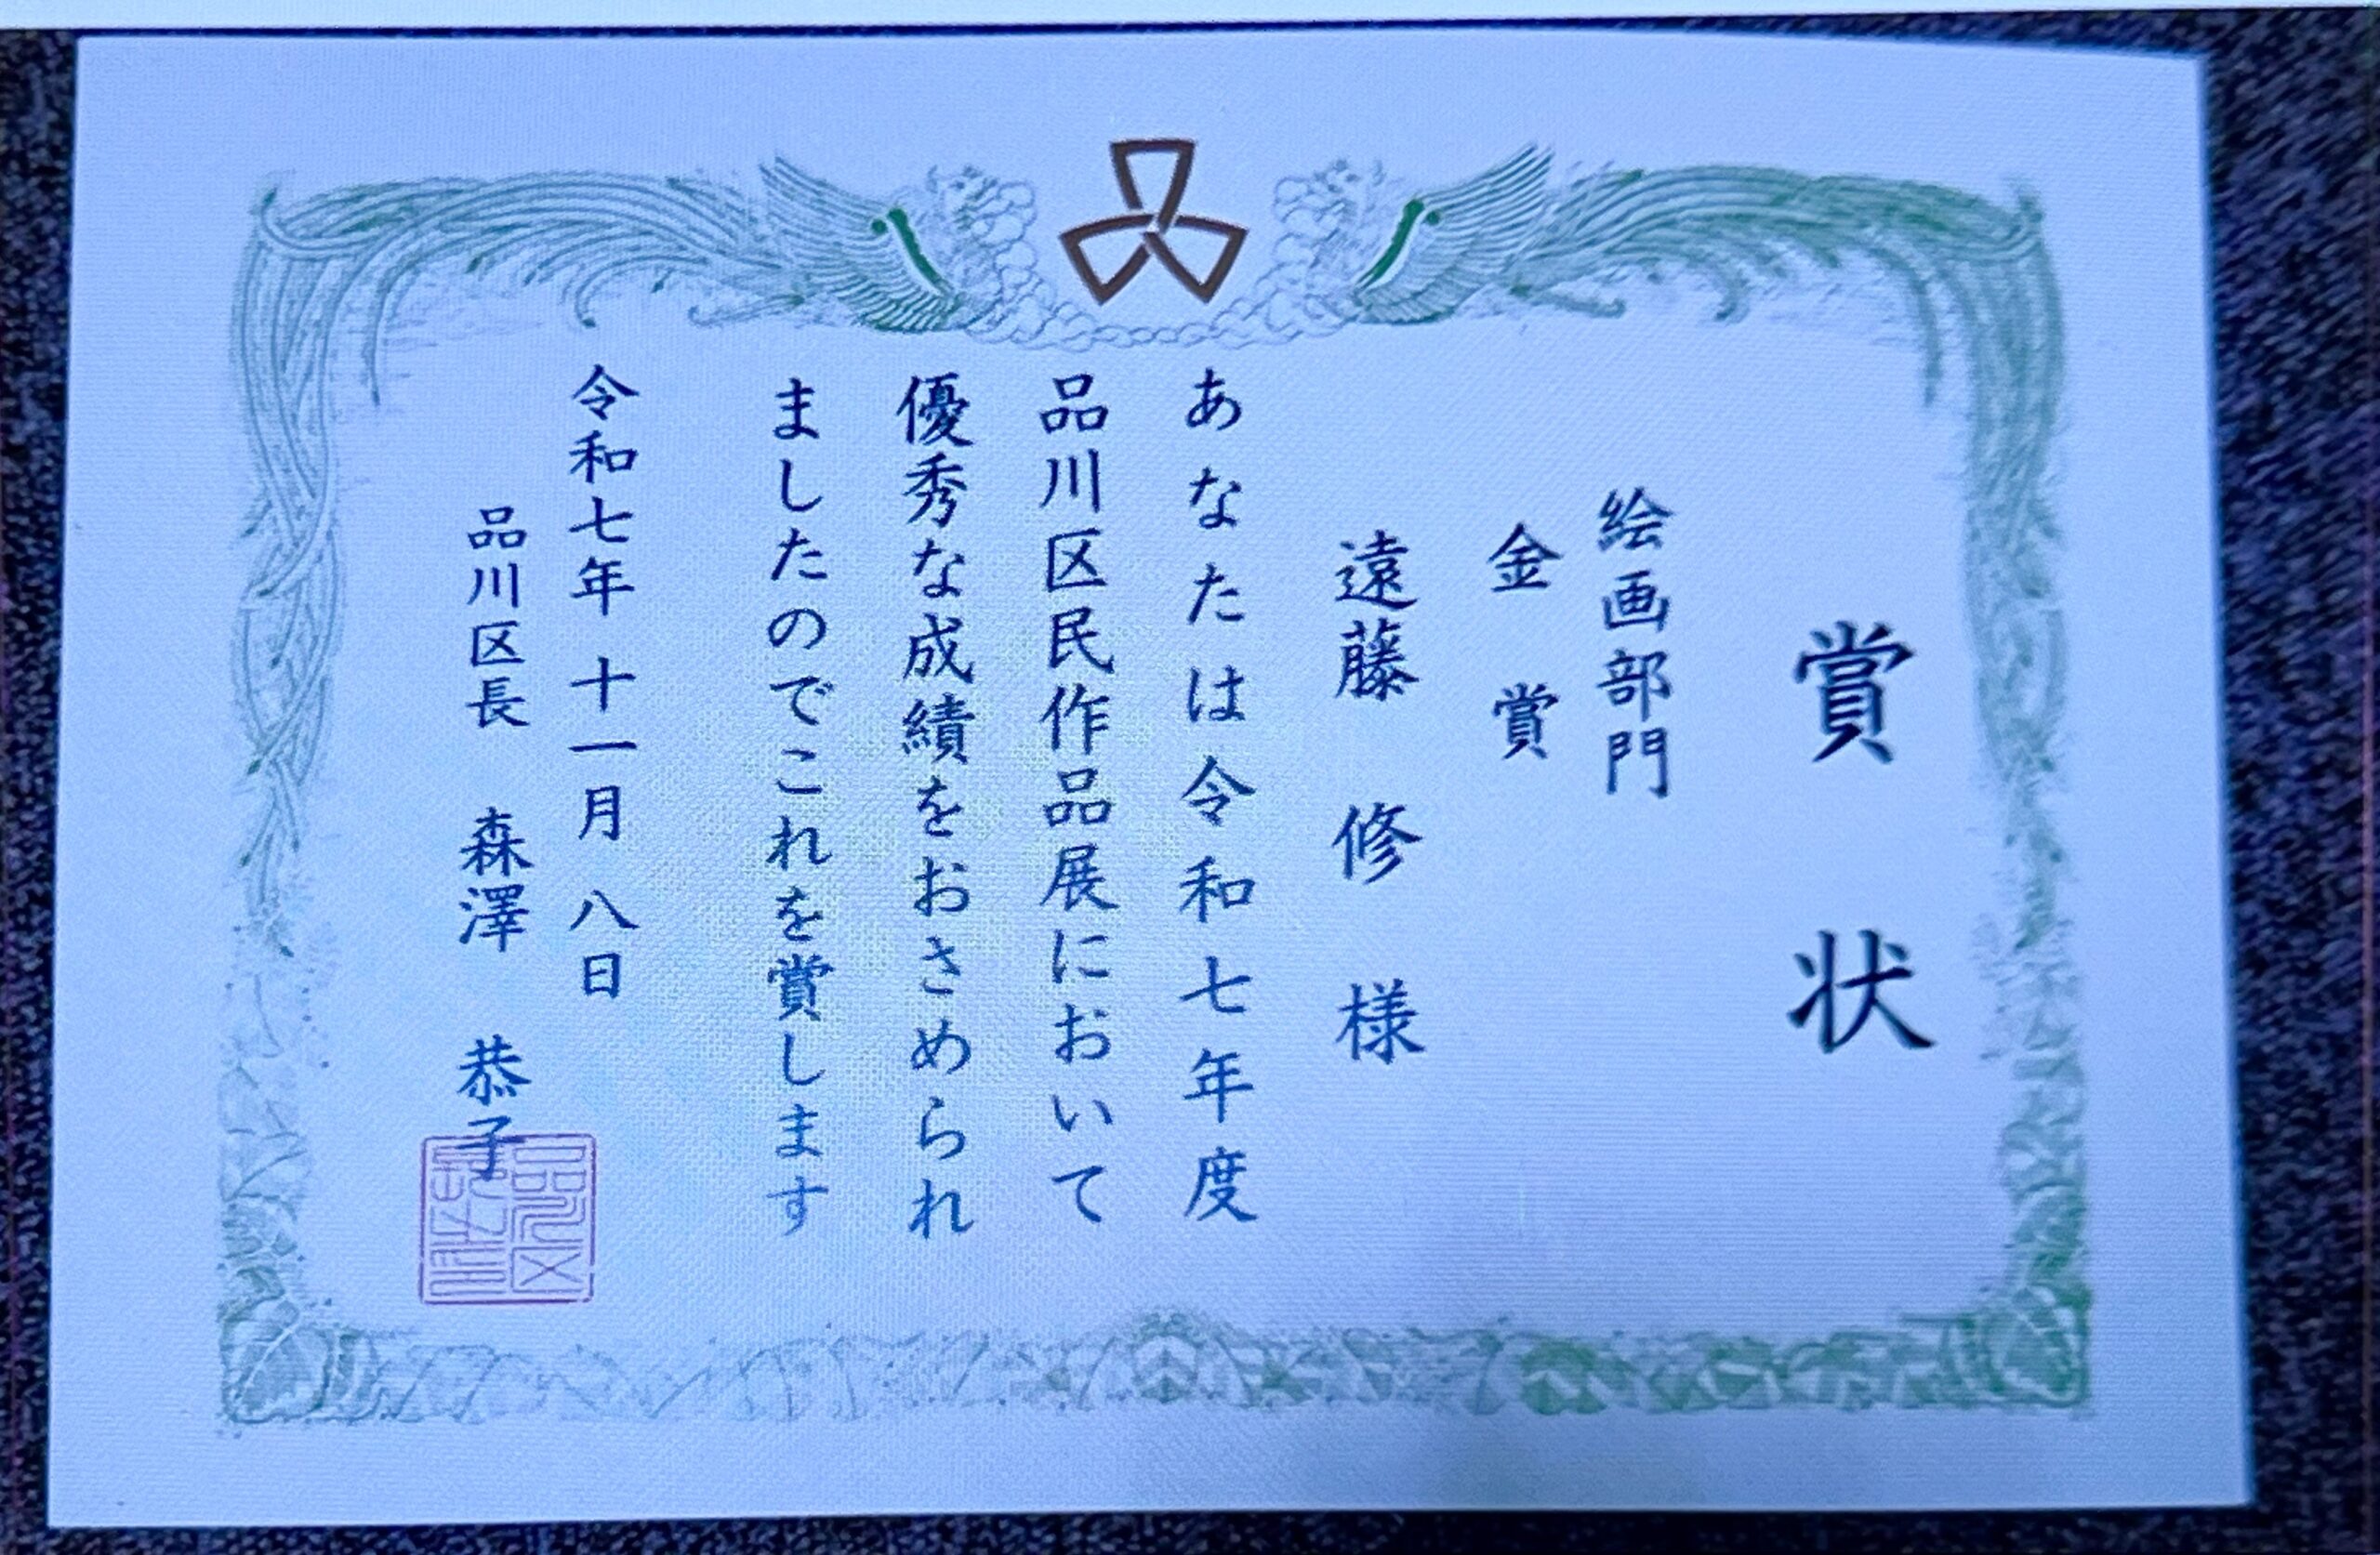 賞状
絵画部門
金賞
遠藤 修 様
あなたは令和七年度
品川区民作品展において
優秀な成績をおさめられ
ましたのでこれを賞します
令和七年 十一月 八日
品川区長 森澤 恭子
品川区長之印